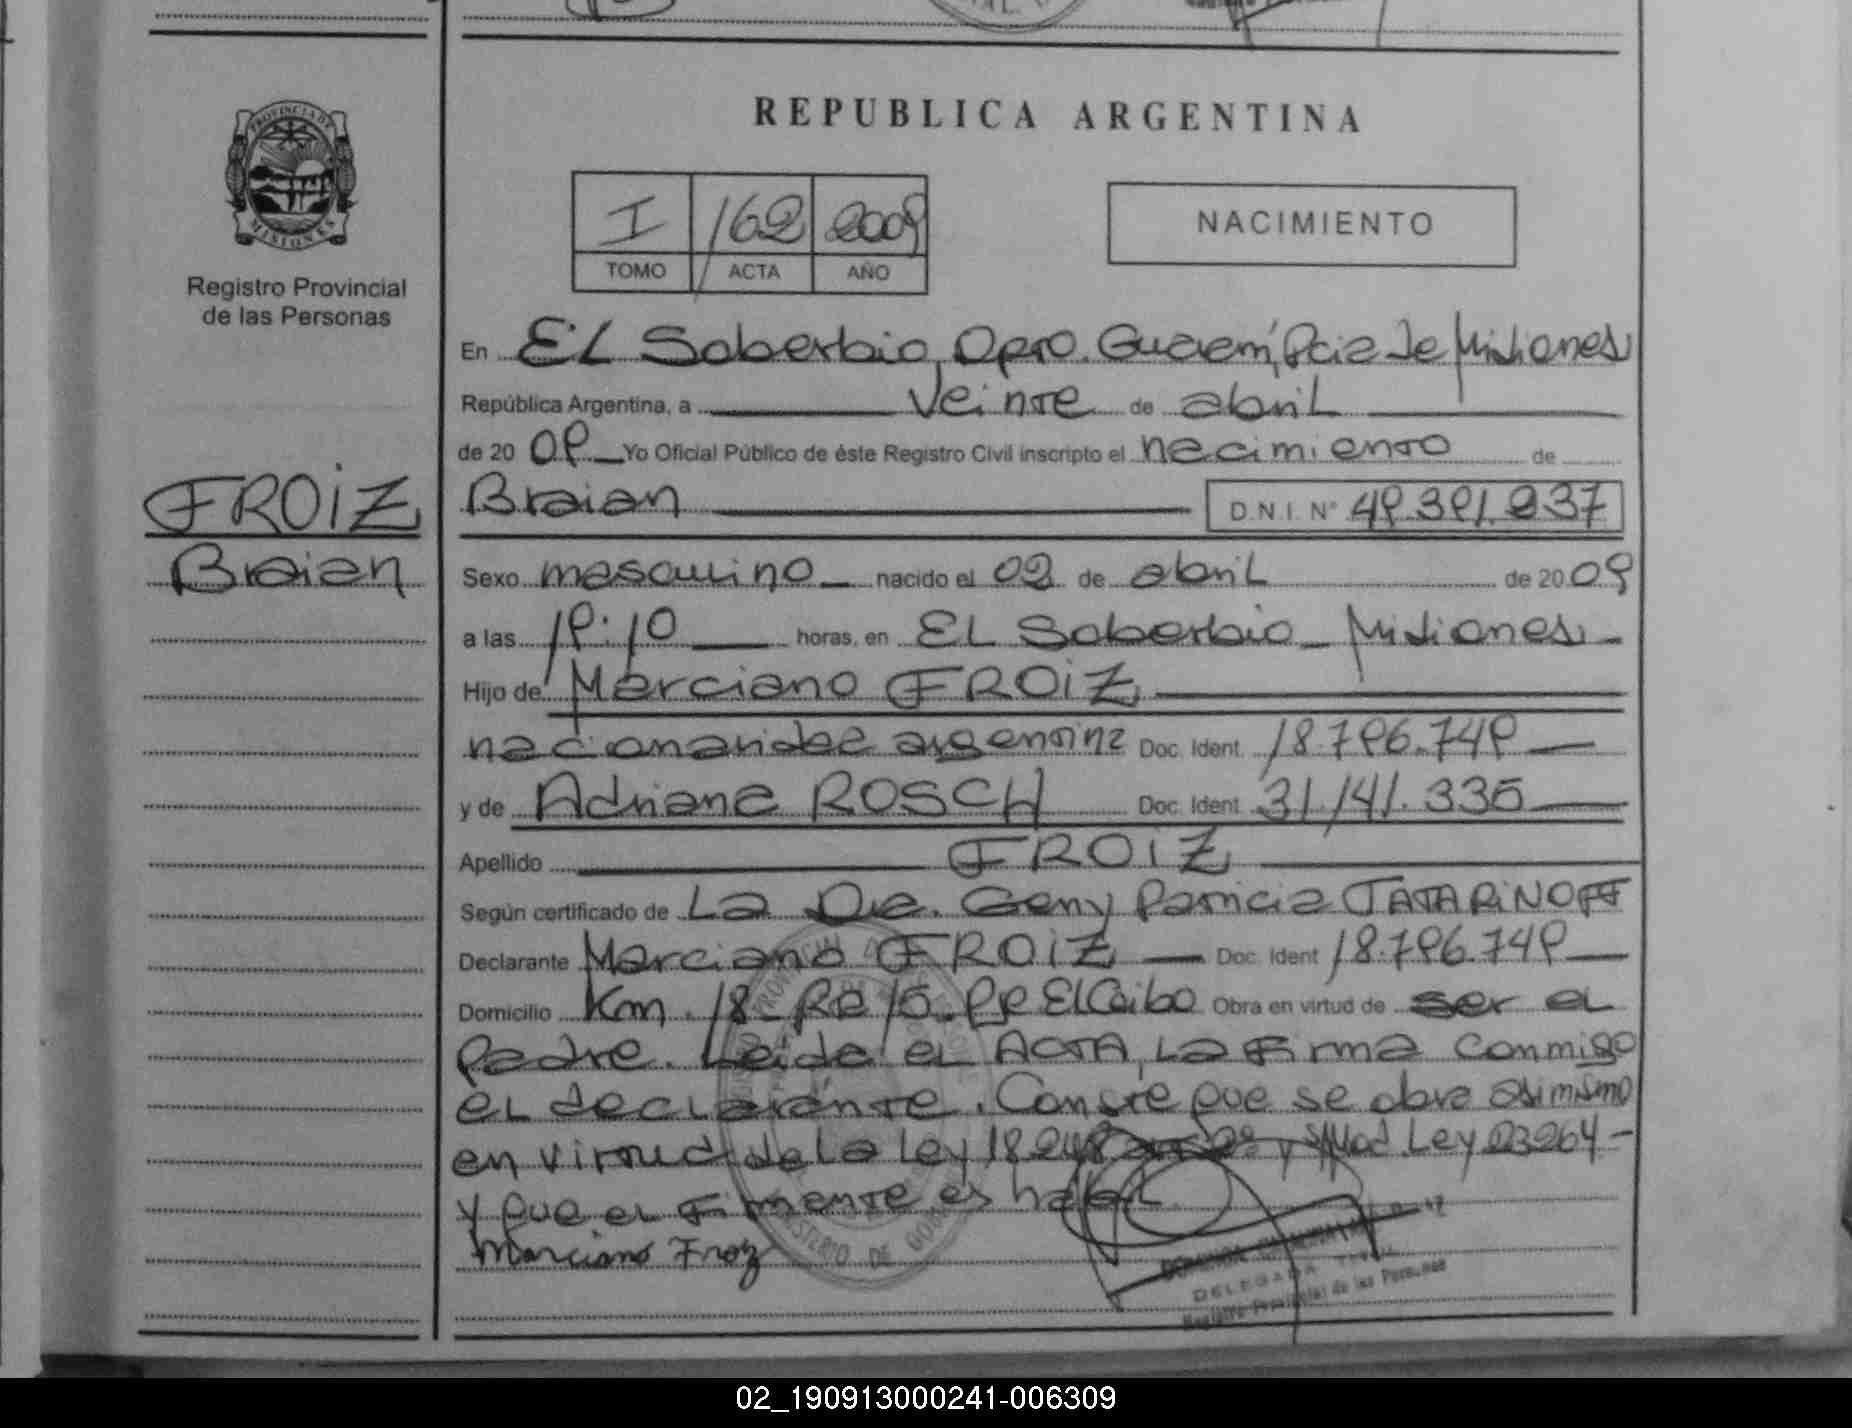 PROVINCIA DE
MISIONES
Registro Provincial
de las Personas
FROIZ
Braian
REPUBLICA ARGENTINA
I 162 2009
TOMO ACTA AÑO
NACIMIENTO
En EL Soberbio, Dpto. Guaraní, Pcia de Misiones
República Argentina, a veinte de abril
de 20 09 Yo Oficial Público de éste Registro Civil inscripto el nacimiento de
Braian D.N.I. Nº 49.391.937
Sexo masculino nacido el 02 de abril de 20 09
a las 19:10 horas, en EL Soberbio - Misiones -
Hijo de Marciano FROIZ
nacionalidad argentina Doc. Ident. 18.796.749
y de Adriana ROSCH Doc. Ident. 31.141.335
Apellido FROIZ
Según certificado de La Dra. Geny Patricia TATARINOFF
Declarante Marciano FROIZ Doc. Ident 18.796.749
Domicilio Km. 18 - El Ceibo Obra en virtud de ser el
padre. Leída el ACTA, La Firma conmigo
el declarante. Conste que se obra asimismo
en virtud de La Ley 18.248 y Ley 23264 -
y que el Firmante es habil.
Marciano Froiz
DELEGADA
Registro Provincial de las Personas
02_190913000241-006309